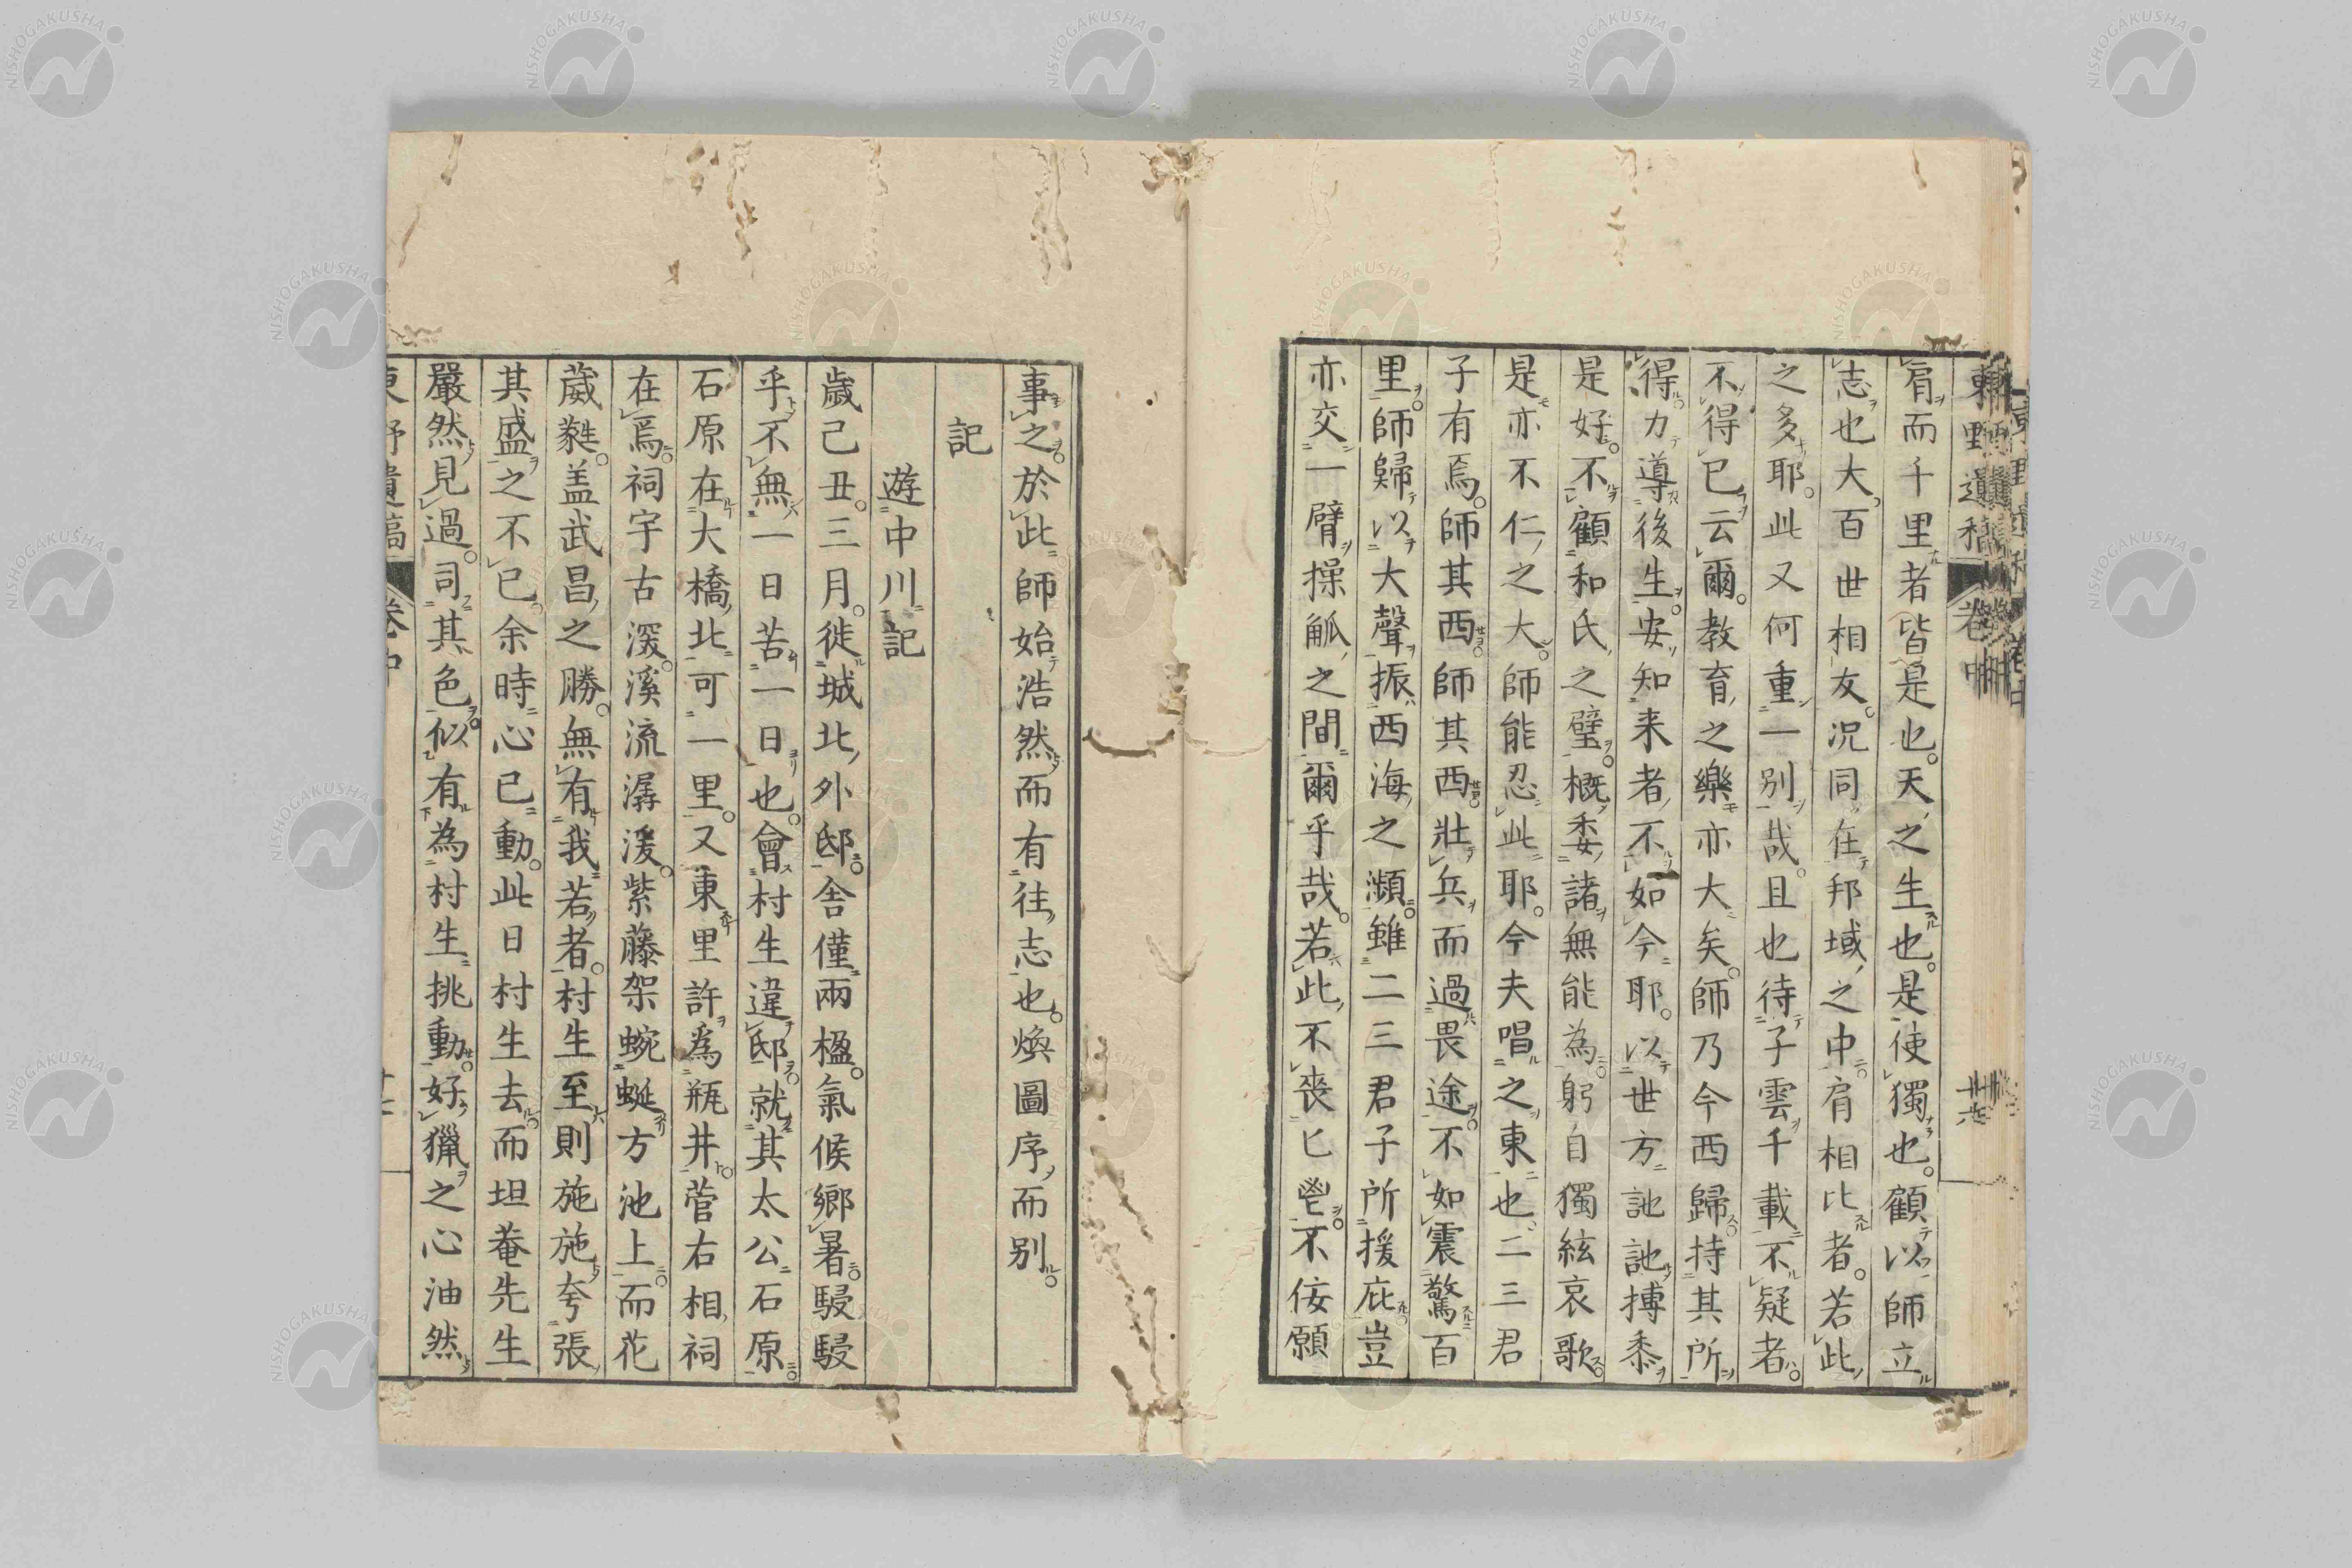 東野遺稿 卷中 廿六
肩而千里者皆是也。天之生也。是使獨也。顧以師立
志也大百世相友。況同在邦域之中肩相比者。若此
之多耶。此又何重一別哉。且也待子雲千載不疑者。
不得已云爾。教育之樂亦大矣。師乃今西歸。持其所
得力導後生。安知来者不如今耶。以世方訑訑搏黍
是好。不顧和氏之璧。概委諸無能為。躬自獨絃哀歌。
是亦不仁之大。師能忍此耶。今夫唱之東也。二三君
子有焉。師其西。師其西壯兵而過畏途。不如震驚百
里。師歸以大聲振西海之瀕。雖二三君子所援庇。豈
亦交一臂操觚之間爾乎哉。若此不喪匕鬯。不佞願
事之。於此師始浩然而有往志也。煥圖序而別。
記
遊中川記
歲己丑。三月。徙城北外邸。舍僅兩楹。氣候鄉暑。駸駸
乎不無一日苦一日也。會村生違邸。就其太公石原。
石原在大橋北可一里。又東里許爲瓶井。菅右相祠
在焉。祠宇古深。溪流潺湲。紫藤架蜿蜒方池上。而花
葳蕤。盖武昌之勝。無有我若者。村生至則施施夸張
其盛之不已。余時心已動。此日村生去。而坦菴先生
嚴然見過。司其色。似有為村生挑動。好獵之心油然
東野遺稿 卷中
NISHOGAKUSHA